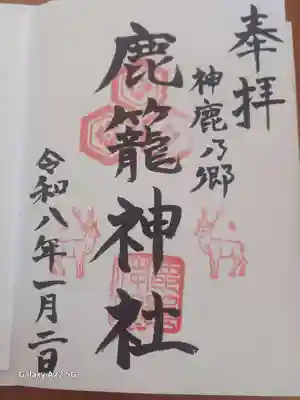 奉拝
神鹿乃郷
鹿籠神社
令和八年一月二日
Galaxy A23 5G